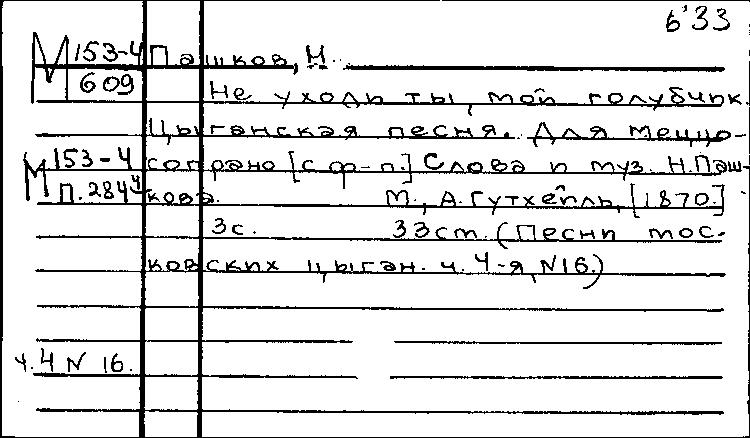 6'33
М 153-4 Пашков, Н.
609
Не уходи ты, мой голубчик.
Цыганская песня. Для меццо-
М 153-4 сопрано [с ф-п.] Слова и муз. Н. Паш-
П. 2844 кова. М., А. Гутхейль, [1870.]
3с. 33см. (Песни мос-
ковских цыган. ч. 4-я, N16.)
ч. 4 N 16.